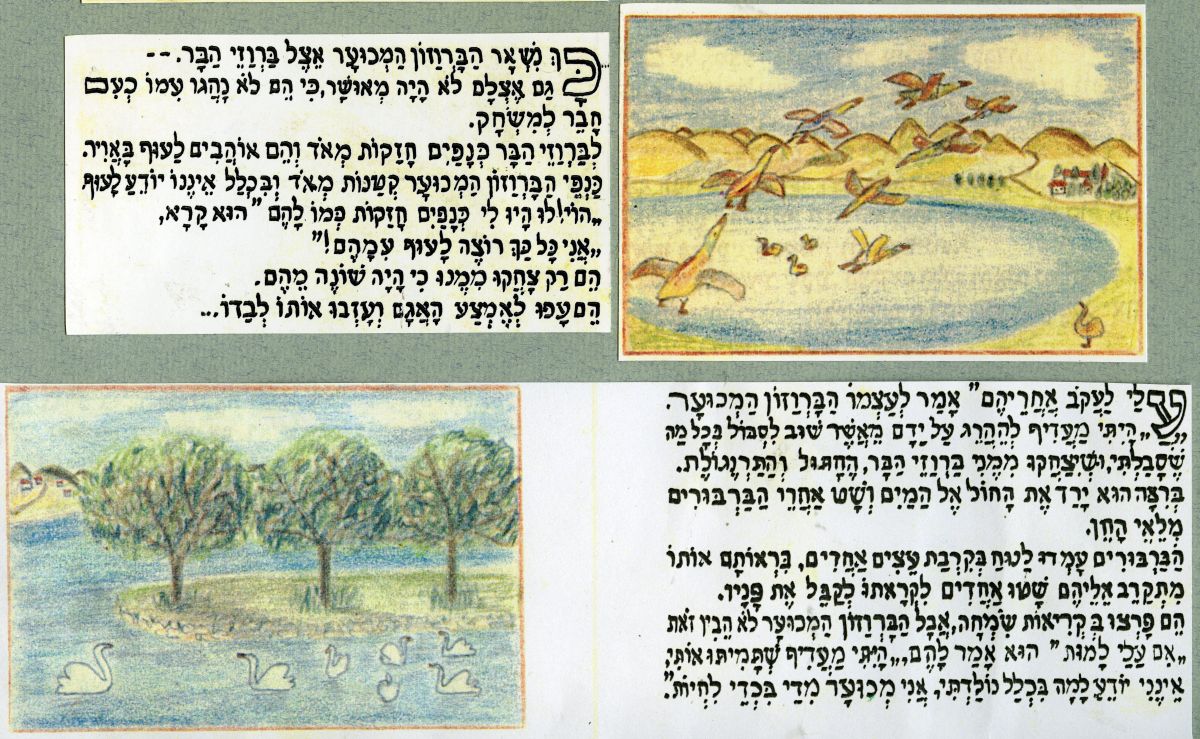 כָּךְ נִשְׁאַר הַבַּרְוָזוֹן הַמְכוֹעָר אֵצֶל בַּרְוָזֵי הַבָּר.--
גַּם אֶצְלָם לֹא הָיָה מְאוּשָׁר,כִּי הֵם לֹא נָהֲגוּ עִמוֹ כְּעִם
חָבֵר לְמִשְׂחָק.
לְבַּרְוָזֵי הַבָּר כְּנָפַיִם חֲזָקוֹת מְאֹד וְהֵם אוֹהֲבִים לַעוּף בָּאֲוִיר.
כַּנְפֵי הַבַּרְוָזוֹן הַמְכוֹעָר קְטַנוֹת מְאֹד וּבִּכְלַל אֵינֶנוּ יוֹדֵעַ לָעוּף
„הוֹי!לוּ הָיוּ לִי כְּנָפַיִם חֲזָקוֹת כְּמוֹ לָהֶם" הוּא קָרָא,
„אֲנִי כָּל כַּךְ רוֹצֶה לָעוּף עִמָהֶם!"
הֵם רַק צָחֲקוּ מִמֶנוּ כִּי הָיָה שׁוֹנֶה מֵהֶם.
הֵם עָפוּ לְאֶמְצַע הָאֲגָם וְעָזְבוּ אוֹתוֹ לְבַדוֹ...
עָלַי לַעֲקֹב אַחֲרֵיהֶם" אָמַר לְעַצְמוֹ הַבַּרְוָזוֹן הַמְכוֹעָר.
„הָיִתִי מַעֲדִיף לְהֵהָרֵג עַל יָדָם מֵאֲשֶׁר שׁוּב לִסְבּוֹל בְּכָל מַה
שֶׁסָבַלְתִּי,וְשֶׁיִצְחֲקוּ מִמֶנִי בַּרְוָזֵי הַבָּר,הֶחָתוּל וְהַתַּרְנְגוֹלֶת.
בְּרִצָה הוּא יָרַד אֶת הַחוֹל אֶל הַמַיִם וְשָׁט אַחֲרֵו הַבַּרְבּוּרִים
מְלֵאֵי הַחֵן.
הַבַּרְבּוּרִים עָמְדוּ לַטוּחַ בְּקִרְבַת עֵצִים אֲחָדִים, בִּרְאוֹתָם אוֹתוֹ
מִתְקַרֵב אֲלֵיהֶם שָׁטוּ אֲחָדִים לִקְרָאתוֹ לְקַבֵּל אֶת פָּנָיו.
הֵם פָּרְצוּ בִּקְרִיאוֹת שִׂמְחָה,אֲבָל הַבַּרְוָזוֹן הַמְכוֹעָר לֹא הֵבִין זֹאת
„אִם עָלַי לָמוּת" הוּא אָמַר לָהֶם,„הָיִיתִי מַעֲדִיף שֶׁתָּמִיתוּ אוֹתִי,
אֵינֶנִי יוֹדֵעַ לָמָה בִּכְלַל נוֹלַדְתִּי, אֲנִי מְכוֹעָר מִדַי בִּכְדֵי לִחְיוֹת".